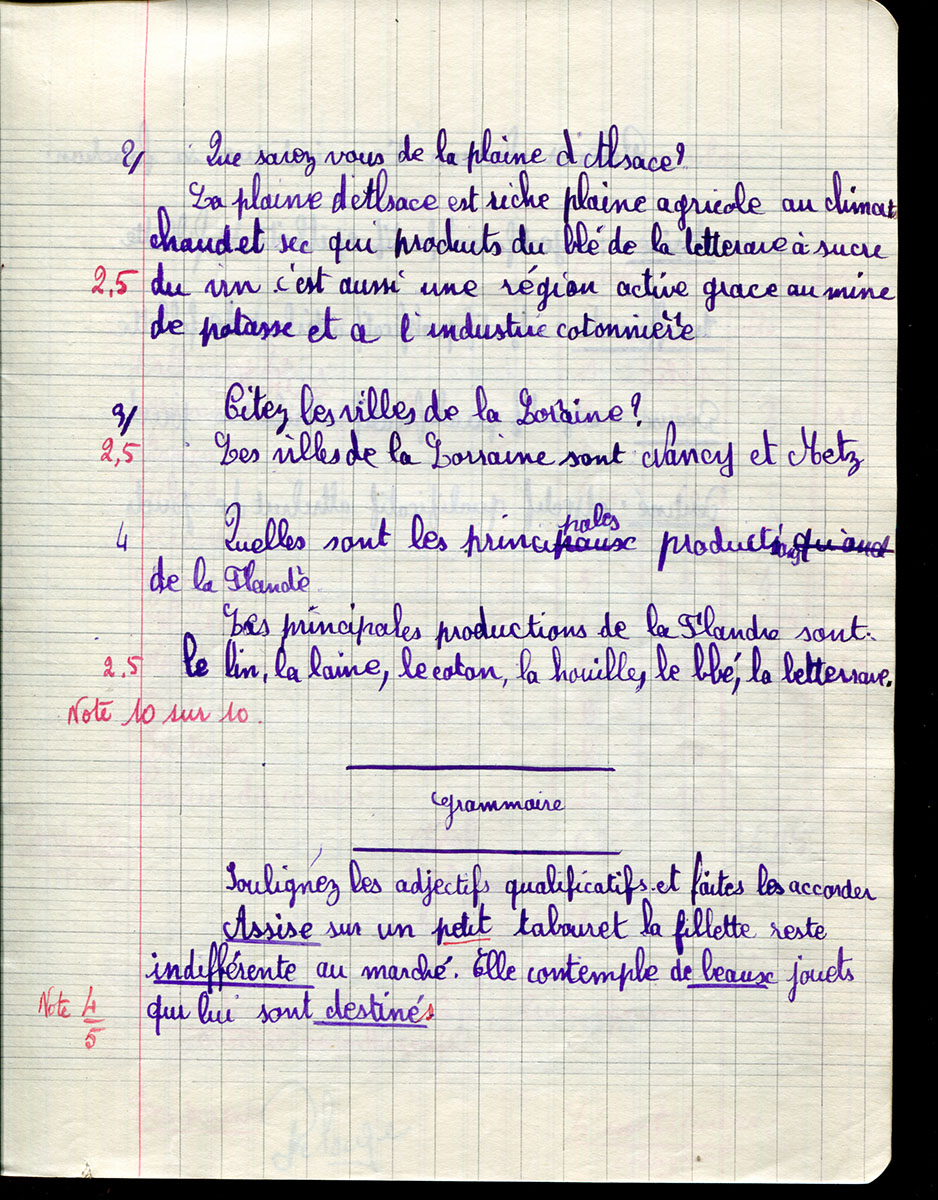 2/ Que savez vous de la plaine d'Alsace?
La plaine d'Alsace est riche plaine agricole au climat
chaud et sec qui produits du blé de la betterave à sucre
2,5 du vin c'est aussi une région active grace au mine
de potasse et a l'industrie cotonnière
3/ Citez les villes de la Loraine?
2,5 Les villes de la Lorraine sont Nancy et Metz
4 Quelles sont les principaux pales productions
de la Flandè
Les principales productions de la Flandre sont:
2,5 le lin, la laine, le coton, la houille, le blé, la betterave.
Note 10 sur 10.
Grammaire
Soulignez les adjectifs qualificatifs et faites les accorder
Assise sur un petit tabouret la fillette reste
indifférente au marché. Elle contemple de beaux jouets
Note 4/5 qui lui sont destinés